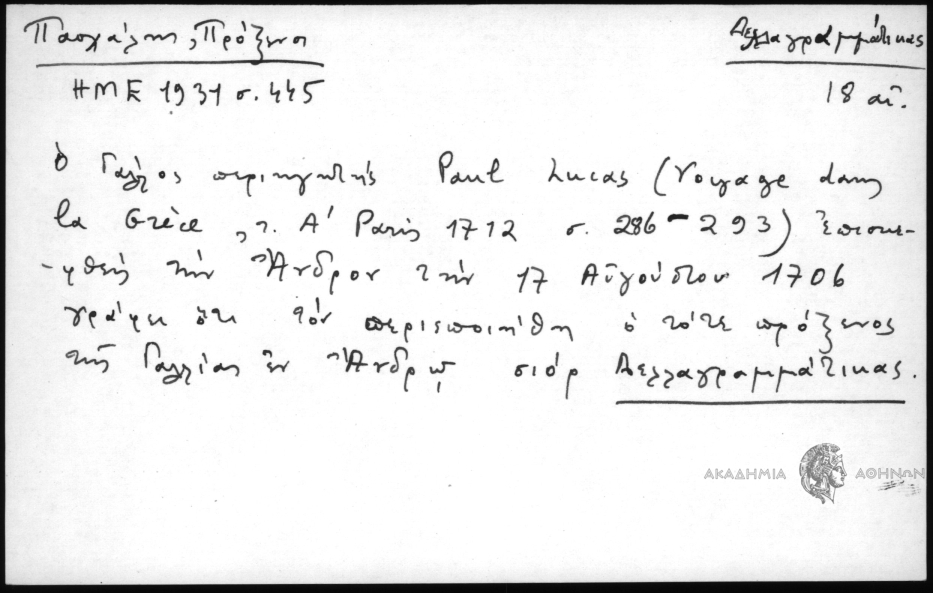 Πασχάλης, Πρόξενοι
Δελλαγραμμάτικας
ΗΜΕ 1931 σ. 445
18 αἰ.
ὁ Γάλλος περιηγητής Paul Lucas (Voyage dans
la Grèce, τ. Α' Paris 1712 σ. 286-293) ἐπισκε-
-φθείς τήν Ἄνδρον τήν 17 Αὐγούστου 1706
γράφει ὅτι τόν περιεποιήθη ὁ τότε πρόξενος
τῆς Γαλλίας ἐν Ἄνδρῳ σιόρ Δελλαγραμμάτικας.
ΑΚΑΔΗΜΙΑ ΑΘΗΝΩΝ